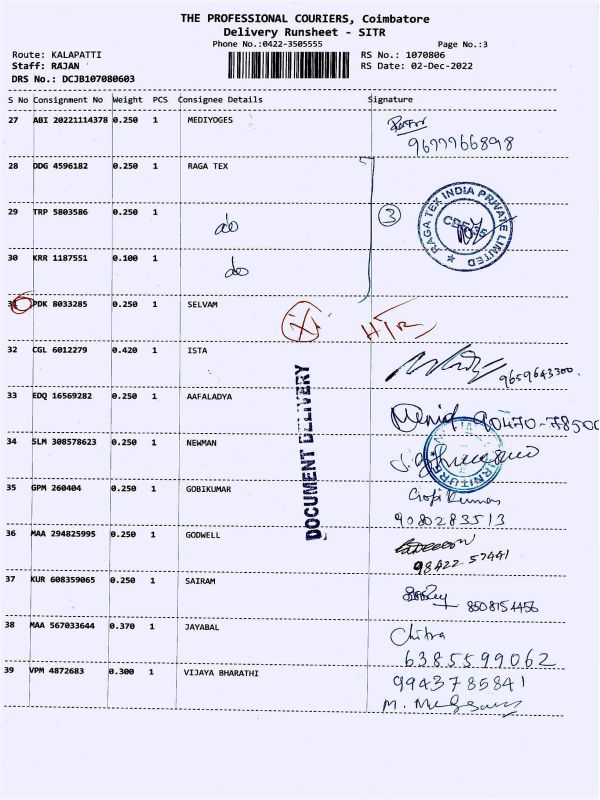 THE PROFESSIONAL COURIERS, Coimbatore
Delivery Runsheet - SITR
Phone No.:0422-3505555 Page No.:3
Route: KALAPATTI RS No.: 1070806
Staff: RAJAN RS Date: 02-Dec-2022
DRS No.: DCJB107080603
S No Consignment No Weight PCS Consignee Details Signature
27 ABI 20221114378 0.250 1 MEDIYOGES
9677766898
28 DDG 4596182 0.250 1 RAGA TEX
RAGA TEX INDIA PRIVATE LIMITED
29 TRP 5803586 0.250 1 do 3
30 KRR 1187551 0.100 1 do
31 PDK 8033285 0.250 1 SELVAM
32 CGL 6012279 0.420 1 ISTA 9659643300.
33 EDQ 16569282 0.250 1 AAFALADYA 90470-78500
34 SLM 308578623 0.250 1 NEWMAN
35 GPM 260404 0.250 1 GOBIKUMAR Gopi Kumar
9080283513
36 MAA 294825995 0.250 1 GODWELL
98422 57441
37 KUR 608359065 0.250 1 SAIRAM 8508154456
38 MAA 567033644 0.370 1 JAYABAL Chitra
6385599062
39 VPM 4872683 0.300 1 VIJAYA BHARATHI 9943785841
DOCUMENT DELIVERY